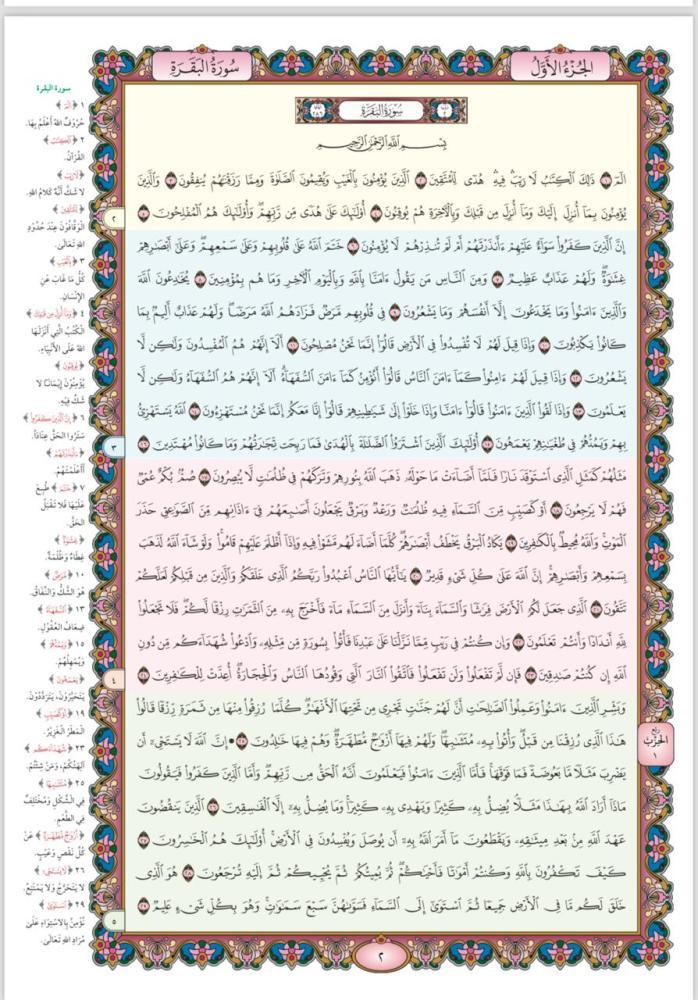 الجُزْءُ الأَوَّلُ
سُورَةُ البَقَرَةِ
سُورَةُ البَقَرَةِ
بِسْمِ اللَّهِ الرَّحْمَٰنِ الرَّحِيمِ
الٓمٓ ١ ذَٰلِكَ الْكِتَٰبُ لَا رَيْبَۛ فِيهِۛ هُدًى لِّلْمُتَّقِينَ ٢ الَّذِينَ يُؤْمِنُونَ بِالْغَيْبِ وَيُقِيمُونَ الصَّلَوٰةَ وَمِمَّا رَزَقْنَٰهُمْ يُنفِقُونَ ٣ وَالَّذِينَ
يُؤْمِنُونَ بِمَا أُنزِلَ إِلَيْكَ وَمَا أُنزِلَ مِن قَبْلِكَ وَبِالْءَاخِرَةِ هُمْ يُوقِنُونَ ٤ أُوْلَٰئِكَ عَلَىٰ هُدًى مِّن رَّبِّهِمْۖ وَأُوْلَٰئِكَ هُمُ الْمُفْلِحُونَ ٥
إِنَّ الَّذِينَ كَفَرُواْ سَوَآءٌ عَلَيْهِمْ ءَأَنذَرْتَهُمْ أَمْ لَمْ تُنذِرْهُمْ لَا يُؤْمِنُونَ ٦ خَتَمَ اللَّهُ عَلَىٰ قُلُوبِهِمْ وَعَلَىٰ سَمْعِهِمْۖ وَعَلَىٰ أَبْصَٰرِهِمْ
غِشَٰوَةٌۖ وَلَهُمْ عَذَابٌ عَظِيمٌ ٧ وَمِنَ النَّاسِ مَن يَقُولُ ءَامَنَّا بِاللَّهِ وَبِالْيَوْمِ الْءَاخِرِ وَمَا هُم بِمُؤْمِنِينَ ٨ يُخَٰدِعُونَ اللَّهَ
وَالَّذِينَ ءَامَنُواْ وَمَا يَخْدَعُونَ إِلَّا أَنفُسَهُمْ وَمَا يَشْعُرُونَ ٩ فِي قُلُوبِهِم مَّرَضٌ فَزَادَهُمُ اللَّهُ مَرَضًاۖ وَلَهُمْ عَذَابٌ أَلِيمٌۢ بِمَا
كَانُواْ يَكْذِبُونَ ١٠ وَإِذَا قِيلَ لَهُمْ لَا تُفْسِدُواْ فِي الْأَرْضِ قَالُواْ إِنَّمَا نَحْنُ مُصْلِحُونَ ١١ أَلَا إِنَّهُمْ هُمُ الْمُفْسِدُونَ وَلَٰكِن لَّا
يَشْعُرُونَ ١٢ وَإِذَا قِيلَ لَهُمْ ءَامِنُواْ كَمَا ءَامَنَ النَّاسُ قَالُواْ أَنُؤْمِنُ كَمَا ءَامَنَ السُّفَهَآءُۗ أَلَا إِنَّهُمْ هُمُ السُّفَهَآءُ وَلَٰكِن لَّا
يَعْلَمُونَ ١٣ وَإِذَا لَقُواْ الَّذِينَ ءَامَنُواْ قَالُواْ ءَامَنَّا وَإِذَا خَلَوْاْ إِلَىٰ شَيَٰطِينِهِمْ قَالُواْ إِنَّا مَعَكُمْ إِنَّمَا نَحْنُ مُسْتَهْزِءُونَ ١٤ اللَّهُ يَسْتَهْزِئُ
بِهِمْ وَيَمُدُّهُمْ فِي طُغْيَٰنِهِمْ يَعْمَهُونَ ١٥ أُوْلَٰئِكَ الَّذِينَ اشْتَرَوُاْ الضَّلَٰلَةَ بِالْهُدَىٰ فَمَا رَبِحَت تِّجَٰرَتُهُمْ وَمَا كَانُواْ مُهْتَدِينَ ١٦
مَثَلُهُمْ كَمَثَلِ الَّذِي اسْتَوْقَدَ نَارًا فَلَمَّا أَضَآءَتْ مَا حَوْلَهُۥ ذَهَبَ اللَّهُ بِنُورِهِمْ وَتَرَكَهُمْ فِي ظُلُمَٰتٍ لَّا يُبْصِرُونَ ١٧ صُمٌّۢ بُكْمٌ عُمْيٌ
فَهُمْ لَا يَرْجِعُونَ ١٨ أَوْ كَصَيِّبٍ مِّنَ السَّمَآءِ فِيهِ ظُلُمَٰتٌ وَرَعْدٌ وَبَرْقٌ يَجْعَلُونَ أَصَٰبِعَهُمْ فِي ءَاذَانِهِم مِّنَ الصَّوَٰعِقِ حَذَرَ
الْمَوْتِۚ وَاللَّهُ مُحِيطٌۢ بِالْكَٰفِرِينَ ١٩ يَكَادُ الْبَرْقُ يَخْطَفُ أَبْصَٰرَهُمْۖ كُلَّمَا أَضَآءَ لَهُم مَّشَوْاْ فِيهِ وَإِذَا أَظْلَمَ عَلَيْهِمْ قَامُواْۚ وَلَوْ شَآءَ اللَّهُ لَذَهَبَ
بِسَمْعِهِمْ وَأَبْصَٰرِهِمْۚ إِنَّ اللَّهَ عَلَىٰ كُلِّ شَيْءٍ قَدِيرٌ ٢٠ يَٰأَيُّهَا النَّاسُ اعْبُدُواْ رَبَّكُمُ الَّذِي خَلَقَكُمْ وَالَّذِينَ مِن قَبْلِكُمْ لَعَلَّكُمْ
تَتَّقُونَ ٢١ الَّذِي جَعَلَ لَكُمُ الْأَرْضَ فِرَٰشًا وَالسَّمَآءَ بِنَآءً وَأَنزَلَ مِنَ السَّمَآءِ مَآءً فَأَخْرَجَ بِهِۦ مِنَ الثَّمَرَٰتِ رِزْقًا لَّكُمْۖ فَلَا تَجْعَلُواْ
لِلَّهِ أَندَادًا وَأَنتُمْ تَعْلَمُونَ ٢٢ وَإِن كُنتُمْ فِي رَيْبٍ مِّمَّا نَزَّلْنَا عَلَىٰ عَبْدِنَا فَأْتُواْ بِسُورَةٍ مِّن مِّثْلِهِۦ وَادْعُواْ شُهَدَآءَكُم مِّن دُونِ
اللَّهِ إِن كُنتُمْ صَٰدِقِينَ ٢٣ فَإِن لَّمْ تَفْعَلُواْ وَلَن تَفْعَلُواْ فَاتَّقُواْ النَّارَ الَّتِي وَقُودُهَا النَّاسُ وَالْحِجَارَةُۖ أُعِدَّتْ لِلْكَٰفِرِينَ ٢٤
وَبَشِّرِ الَّذِينَ ءَامَنُواْ وَعَمِلُواْ الصَّٰلِحَٰتِ أَنَّ لَهُمْ جَنَّٰتٍ تَجْرِي مِن تَحْتِهَا الْأَنْهَٰرُۖ كُلَّمَا رُزِقُواْ مِنْهَا مِن ثَمَرَةٍ رِّزْقًا قَالُواْ
هَٰذَا الَّذِي رُزِقْنَا مِن قَبْلُۖ وَأُتُواْ بِهِۦ مُتَشَٰبِهًاۖ وَلَهُمْ فِيهَا أَزْوَٰجٌ مُّطَهَّرَةٌۖ وَهُمْ فِيهَا خَٰلِدُونَ ٢٥ ۞إِنَّ اللَّهَ لَا يَسْتَحْيِۦ أَن
يَضْرِبَ مَثَلًا مَّا بَعُوضَةً فَمَا فَوْقَهَاۚ فَأَمَّا الَّذِينَ ءَامَنُواْ فَيَعْلَمُونَ أَنَّهُ الْحَقُّ مِن رَّبِّهِمْۖ وَأَمَّا الَّذِينَ كَفَرُواْ فَيَقُولُونَ
مَاذَا أَرَادَ اللَّهُ بِهَٰذَا مَثَلًاۘ يُضِلُّ بِهِۦ كَثِيرًا وَيَهْدِي بِهِۦ كَثِيرًاۚ وَمَا يُضِلُّ بِهِۦ إِلَّا الْفَٰسِقِينَ ٢٦ الَّذِينَ يَنقُضُونَ
عَهْدَ اللَّهِ مِنۢ بَعْدِ مِيثَٰقِهِۦ وَيَقْطَعُونَ مَا أَمَرَ اللَّهُ بِهِۦ أَن يُوصَلَ وَيُفْسِدُونَ فِي الْأَرْضِۚ أُوْلَٰئِكَ هُمُ الْخَٰسِرُونَ ٢٧
كَيْفَ تَكْفُرُونَ بِاللَّهِ وَكُنتُمْ أَمْوَٰتًا فَأَحْيَٰكُمْۖ ثُمَّ يُمِيتُكُمْ ثُمَّ يُحْيِيكُمْ ثُمَّ إِلَيْهِ تُرْجَعُونَ ٢٨ هُوَ الَّذِي
خَلَقَ لَكُم مَّا فِي الْأَرْضِ جَمِيعًا ثُمَّ اسْتَوَىٰ إِلَى السَّمَآءِ فَسَوَّىٰهُنَّ سَبْعَ سَمَٰوَٰتٍۚ وَهُوَ بِكُلِّ شَيْءٍ عَلِيمٌ ٢٩
٢
٣
٤
٥
رُبع
الحِزْب
١
٢
سورة البقرة
١ ﴿الٓمٓ﴾
حُرُوفٌ اللهُ أَعْلَمُ بِهَا.
٢ ﴿الْكِتَٰبُ﴾
القُرْآنُ.
﴿لَا رَيْبَ﴾
لا شَكَّ أَنَّهُ كَلامُ اللهِ.
﴿لِّلْمُتَّقِينَ﴾
الوَقَّافُونَ عِنْدَ حُدُودِ
اللهِ تَعَالَى.
٣ ﴿بِالْغَيْبِ﴾
كُلُّ مَا غَابَ عَنِ
الإِنْسَانِ.
٤ ﴿وَمَا أُنزِلَ مِن قَبْلِكَ﴾
الكُتُبُ الَّتِي أَنْزَلَهَا
اللهُ عَلَى الأَنْبِيَاءِ.
﴿يُوقِنُونَ﴾
يُؤْمِنُونَ إِيمَانًا لا
شَكَّ فِيهِ.
٦ ﴿إِنَّ الَّذِينَ كَفَرُواْ﴾
سَتَرُوا الحَقَّ عِنَادًا.
﴿ءَأَنذَرْتَهُمْ﴾
أَأَعْلَمْتَهُمْ.
٧ ﴿خَتَمَ﴾ طَبَعَ
عَلَيْهَا فَلا تَقْبَلُ
الحَقَّ.
﴿غِشَٰوَةٌ﴾
غِطَاءٌ وَظُلْمَةٌ.
١٠ ﴿مَّرَضٌ﴾
هُوَ الشَّكُّ وَالنِّفَاقُ.
١٣ ﴿السُّفَهَآءُ﴾
ضِعَافُ العُقُولِ.
١٥ ﴿وَيَمُدُّهُمْ﴾
وَيُمْهِلُهُمْ.
﴿يَعْمَهُونَ﴾
يَتَحَيَّرُونَ، يَتَرَدَّدُونَ.
١٩ ﴿أَوْ كَصَيِّبٍ﴾
المَطَرُ الغَزِيرُ.
٢٣ ﴿شُهَدَآءَكُم﴾
آلِهَتَكُمْ، وَمَنْ شِئْتُمْ.
٢٥ ﴿مُتَشَٰبِهًا﴾
فِي الشَّكْلِ وَمُخْتَلِفٌ
فِي الطَّعْمِ.
﴿أَزْوَٰجٌ مُّطَهَّرَةٌ﴾ عَنْ
كُلِّ نَقْصٍ وَعَيْبٍ.
٢٦ ﴿لَا يَسْتَحْيِۦ﴾
لا يَتَحَرَّجُ وَلا يَمْتَنِعُ.
٢٩ ﴿اسْتَوَىٰ﴾
نُؤْمِنُ بِالاسْتِوَاءِ عَلَى
مُرَادِ اللهِ تَعَالَى.